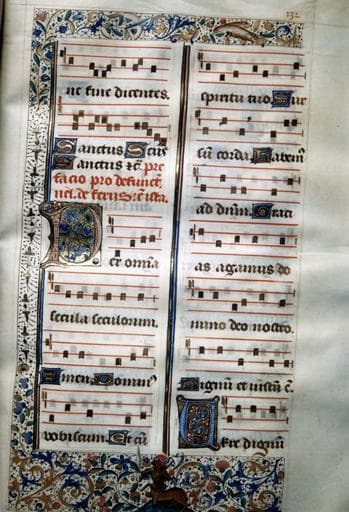 132
ne fine dicentes.
Sanctus Scūs
Sanctus ⁊c̄. pre
facio pro defunct̄.
uel. de feriis. s. ista.
Per omnia
secula seculorum.
Amen. Dominꝰ
vobiscum. Et cū
spiritu tuo. Sur
sū corda. Habemꝰ
ad dn̄m. Graci
as agamus do
mino deo nostro.
Dignū et iustū ē.
Uere dignū